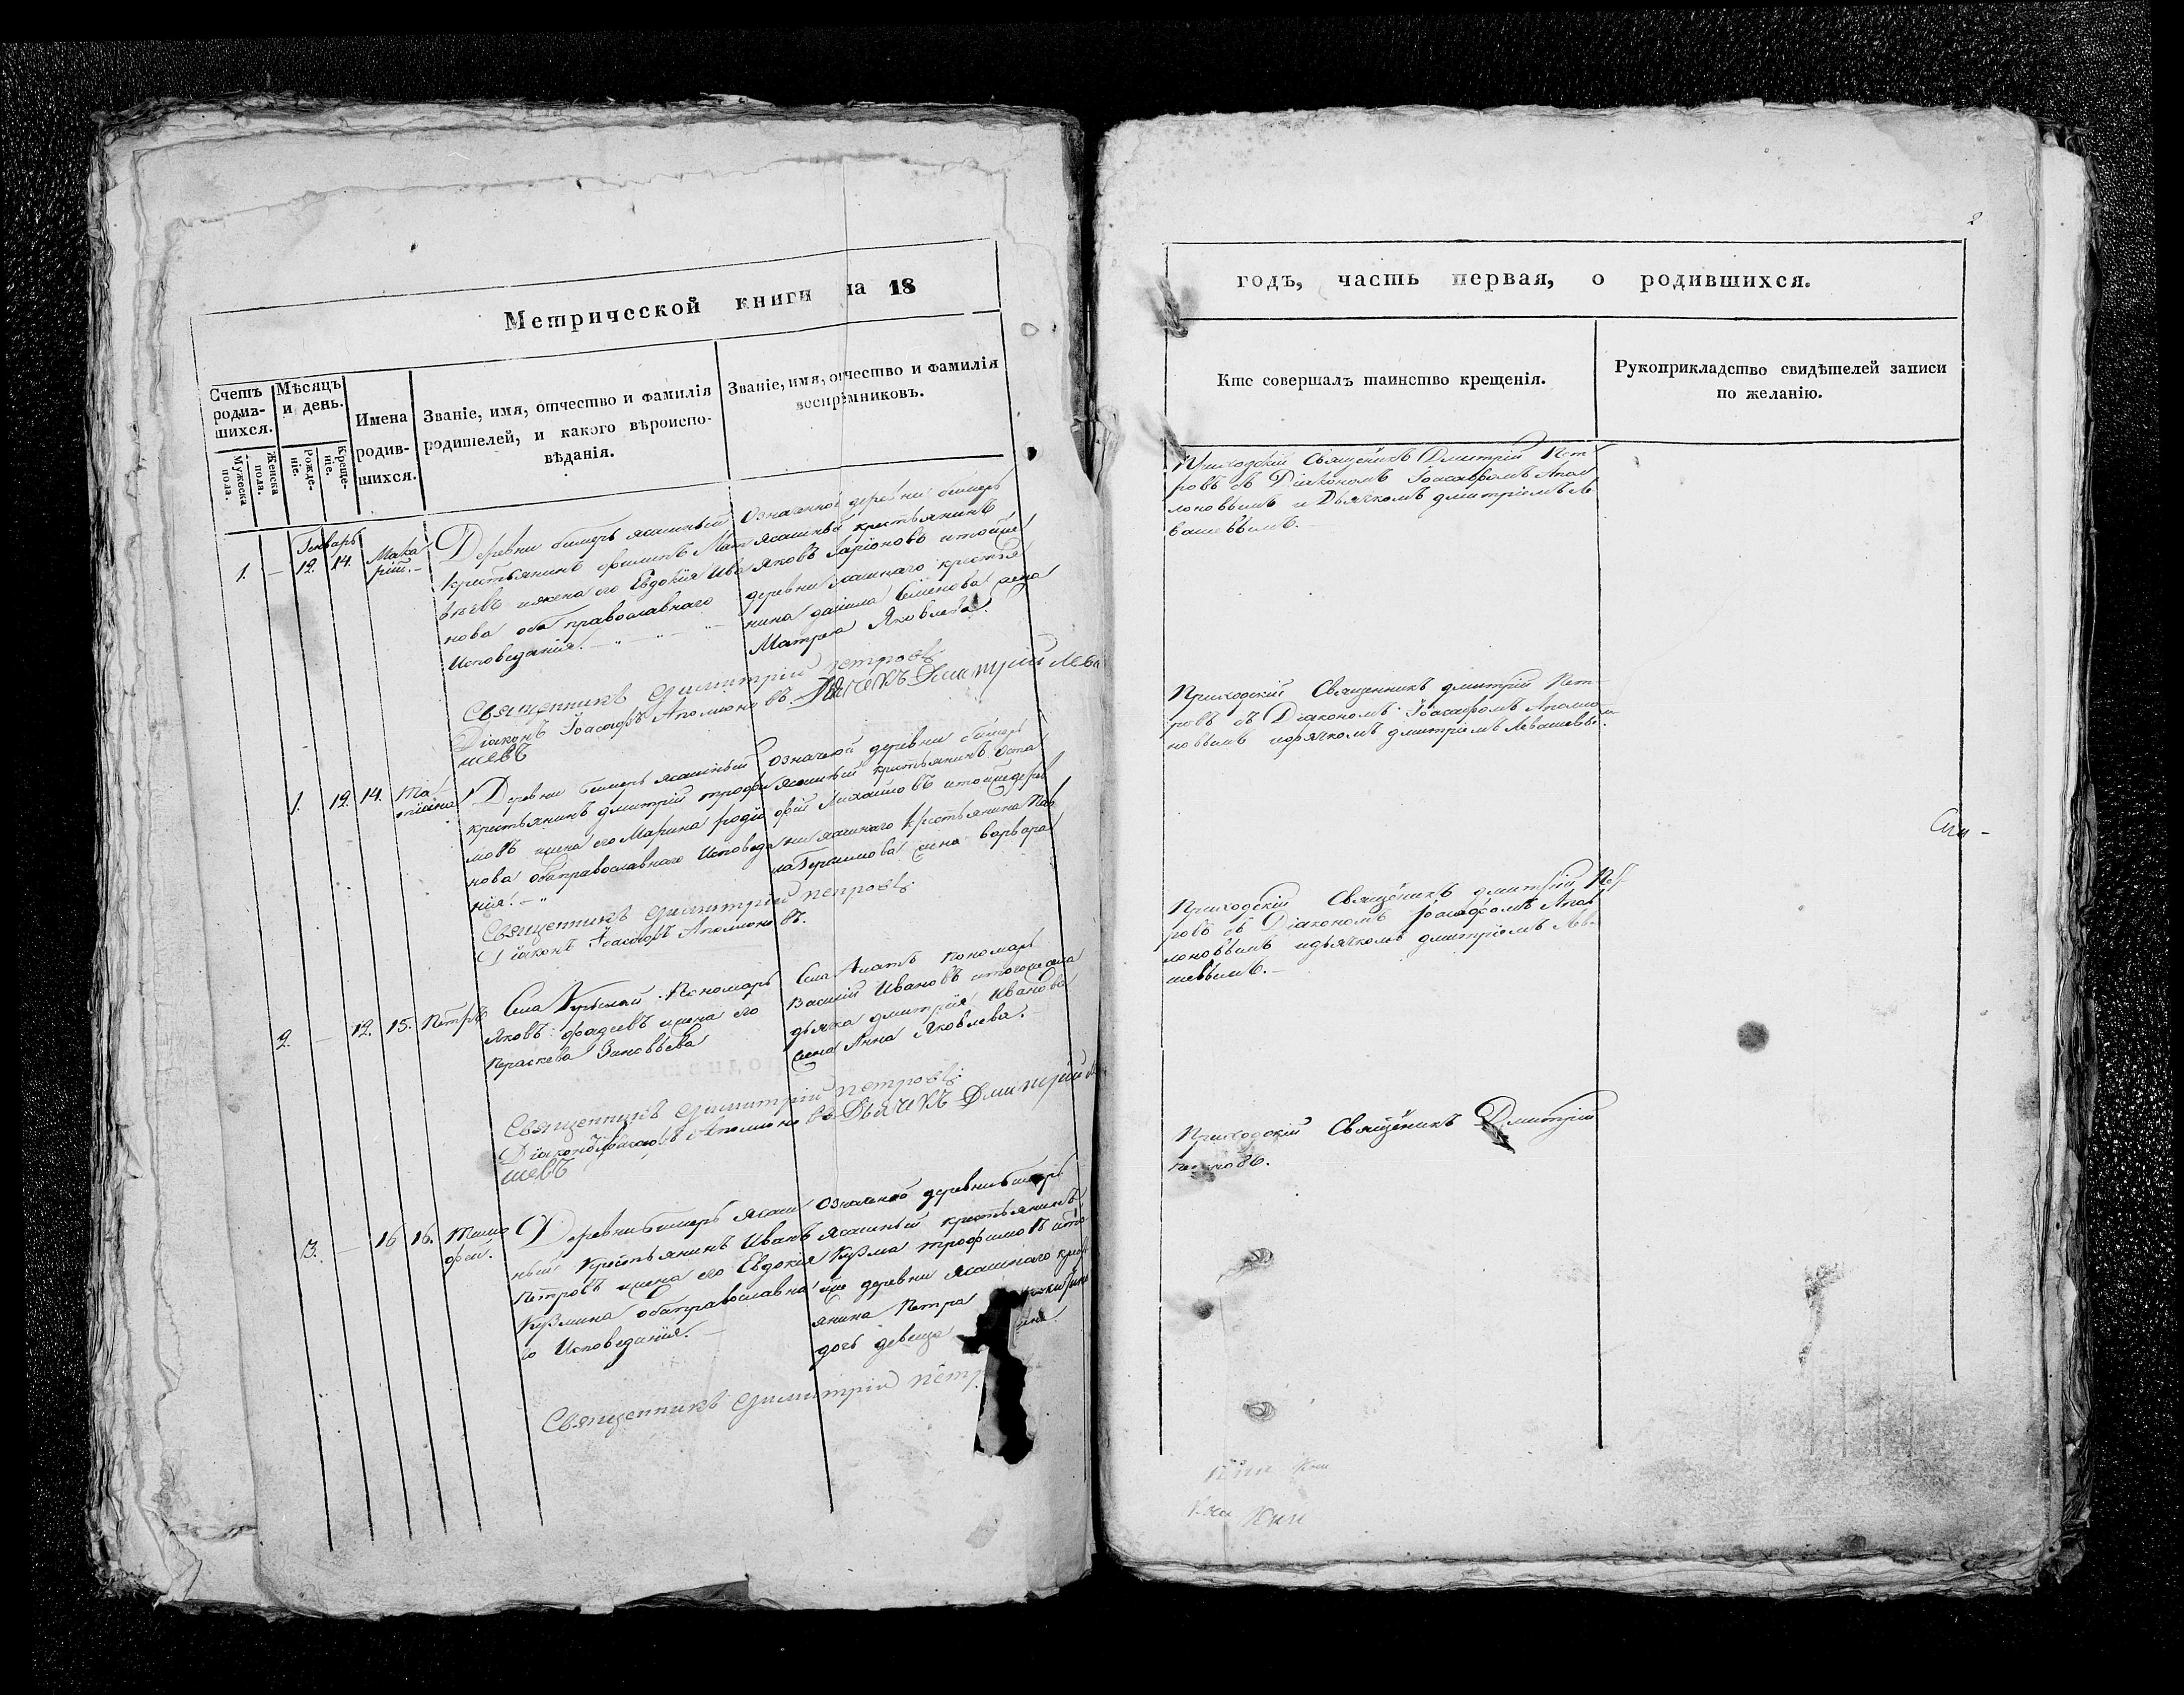 Метрической книги на 18
Счетъ родив-шихся.
Мужеска пола.
Женска пола.
Мѣсяцъ и день.
Рожде-ніе.
Креще-ніе.
Имена родив-шихся.
Званіе, имя, отчество и фамилія
родителей, и какого вѣроиспо-
вѣданія.
Званіе, имя, отчество и фамилія
воспріемниковъ.
Генварь
1. — 12. 14. Мака
рій. —
Деревни бимерь ясашный
крестьянинъ филипъ Мат
вѣевъ ижена его Евдокія Ива
нова оба православнаго
Исповеданія. —
Означенной деревни бимерь
ясашный крестьянинъ
Яковъ Ларіоновъ итойже
деревни ясашнаго крестья
нина данила Семенова жена
Матрена Яковлева.
Священникъ Димитрій петровъ
Діаконъ Іоасафъ Аполлоновъ. Дьячекъ Дмитрій Лева
шевъ
1. 12. 14. Та
тіана
Деревни бимерь ясашный
крестьянинъ дмитрій трофи
мовъ жена его Марина родіо
нова оба православнаго Исповеда
нія. —
Означеной деревни бимерь
ясашный крестьянинъ Оста
фій Михаиловъ итойже дерев
ни ясашнаго крестьянина Пав
ла Герасимова жена варвара
Священникъ Димитрій петровъ
Діаконъ Іоасафъ Аполлоновъ.
2. — 12. 15. Петръ
Села Пономарь
Яковъ фадеевъ жена его
Параскева Зиновьева
Села Пономарь
Василій Ивановъ итогоже села
дьячка дмитрія Иванова
жена Анна Яковлева.
Священникъ Димитрій петровъ
Діаконъ Іоасафъ Аполлоновъ Дьячекъ Дмитрій Л
шевъ
3. — 16 16. Тимо
фей.
Деревни бимерь Ясаш
ный Крестьянинъ Иванъ
Петровъ жена его Евдокія
Кузмина оба православна
го Исповеданія. —
Означеной деревни бимерь
Ясашный крестьянинъ
Кузма трофимовъ ито
йже деревни Ясашнаго крес
янина Петра
дочь девица
Священникъ Димитрій петр
2
годъ, часть первая, о родившихся.
Кто совершалъ таинство крещенія.
Рукоприкладство свидѣтелей записи
по желанію.
Приходскій Священикъ Дмитрій Пет
ровъ съ Діакономъ Іоасафомъ Апол
лоновымъ и Дьячкомъ дмитріемъ Ле
вашевымъ. —
Приходскій Священникъ дмитрій Пет
ровъ съ Діакономъ Іоасафомъ Аполло
новымъ идьячкомъ дмитріемъ Левашевы
Приходскій Священикъ дмитрій Пет
ровъ съ Діакономъ Іоасафомъ Апол
лоновымъ идьячкомъ дмитріемъ Лева
шевымъ. —
Приходскій Священикъ Дмитрій
Петровъ.